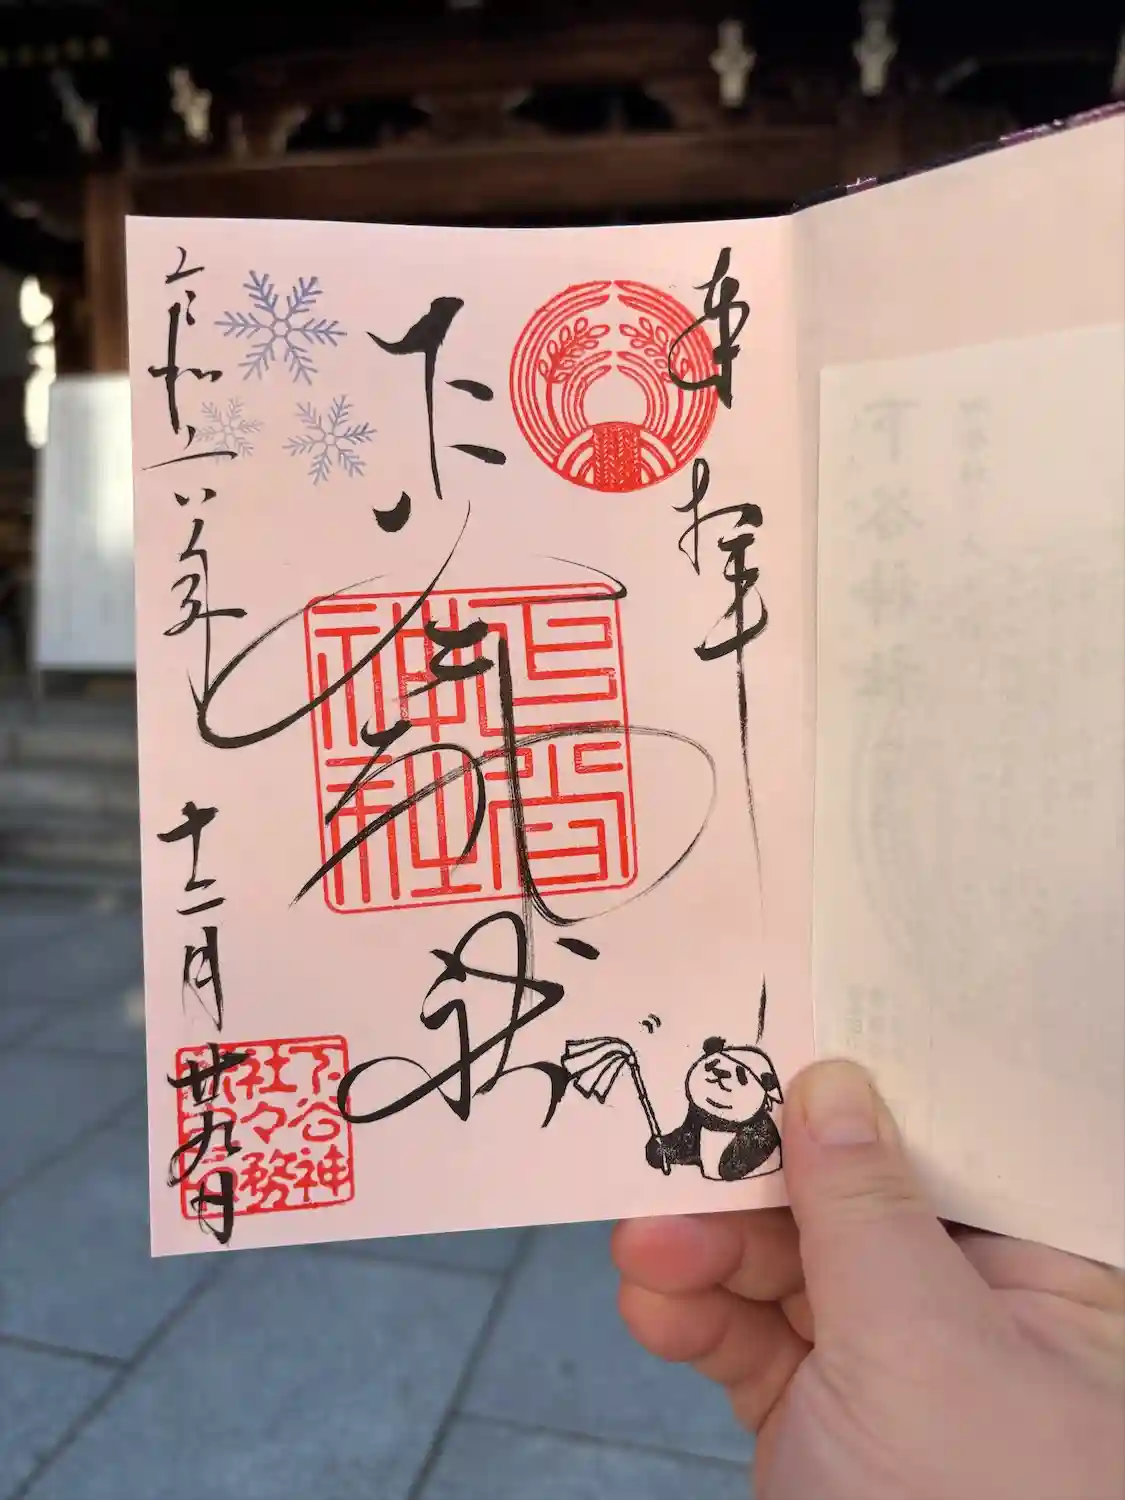 奉拝
下谷神社
下谷
神社
令和六年十二月廿九日
下谷神
社々務